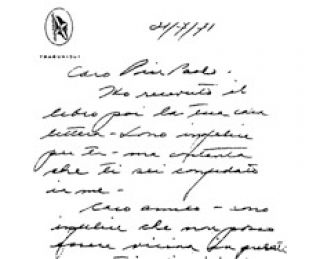 TRAGURIOUI
24/7/71
Caro Pier Paolo.
Ho ricevuto il
libro poi la tua cara
lettera - Sono infelice
per te - ma contenta
che ti sei confidato
in me -
Caro amico - sono
infelice che non posso
essere vicina in questi